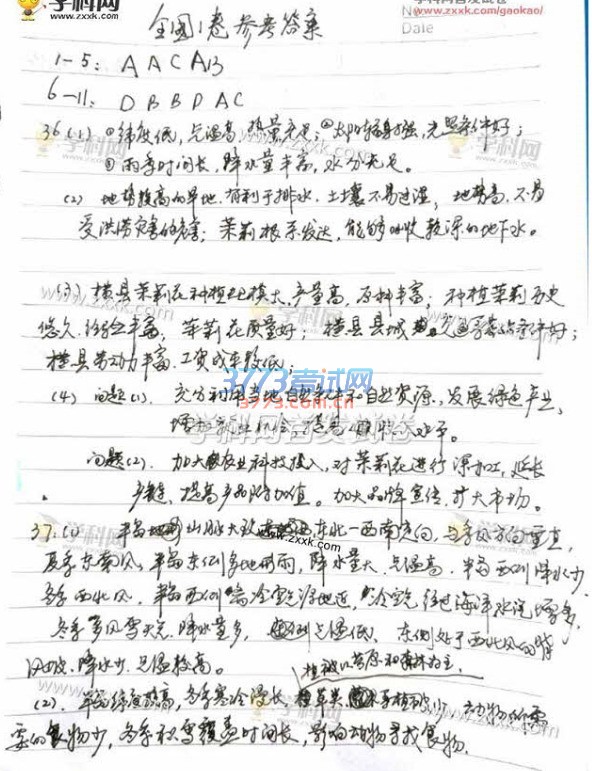 学科网
www.zxxk.com
www.zxxk.com/gaokao/
No
Date
全国1卷参考答案
1-5: A A C A B
6-11: D B B D A C
36 (1) ①纬度低,气温高,热量充足;②太阳辐射强,光照条件好;
③雨季时间长,降水量丰富,水分充足。
(2) 地势较高的旱地,有利于排水,土壤不易过湿;地势高,不易
受洪涝灾害的危害;茉莉根系发达,能够吸收较深的地下水。
(3) 横县茉莉花种植规模大,产量高,原料丰富;种植茉莉历史
悠久,经验丰富,茉莉花质量好;横县县城 交通 条件好;
横县劳动力丰富,工资成本较低;
3773考试网
3773.com.cn
(4) 问题(1). 充分利用当地自然条件和自然资源,发展绿色产业,
增加就业机会,提高 水平。
学科网首发试卷
问题(2). 加大农业科技投入,对茉莉花进行深加工,延长
产业链,提高产品附加值。加大品牌宣传,扩大市场。
37.(1) 半岛 山脉大致 东北—西南走向,与季风方向垂直,
夏季东南风,半岛东侧多地形雨,降水量大,气温高,半岛西侧降水少
冬季西北风,半岛西侧离冷空气源地近,冷空气经过海洋水汽增多,
冬季多风雪天气,降水量多, 西侧气温低,东侧处于西北风的背
风坡,降水少,气温较高。
植被以苔原和森林为主,
(2). 半岛纬度较高,冬季寒冷漫长, 动物所需
要的食物少,冬季积雪覆盖时间长,影响动物寻找食物.